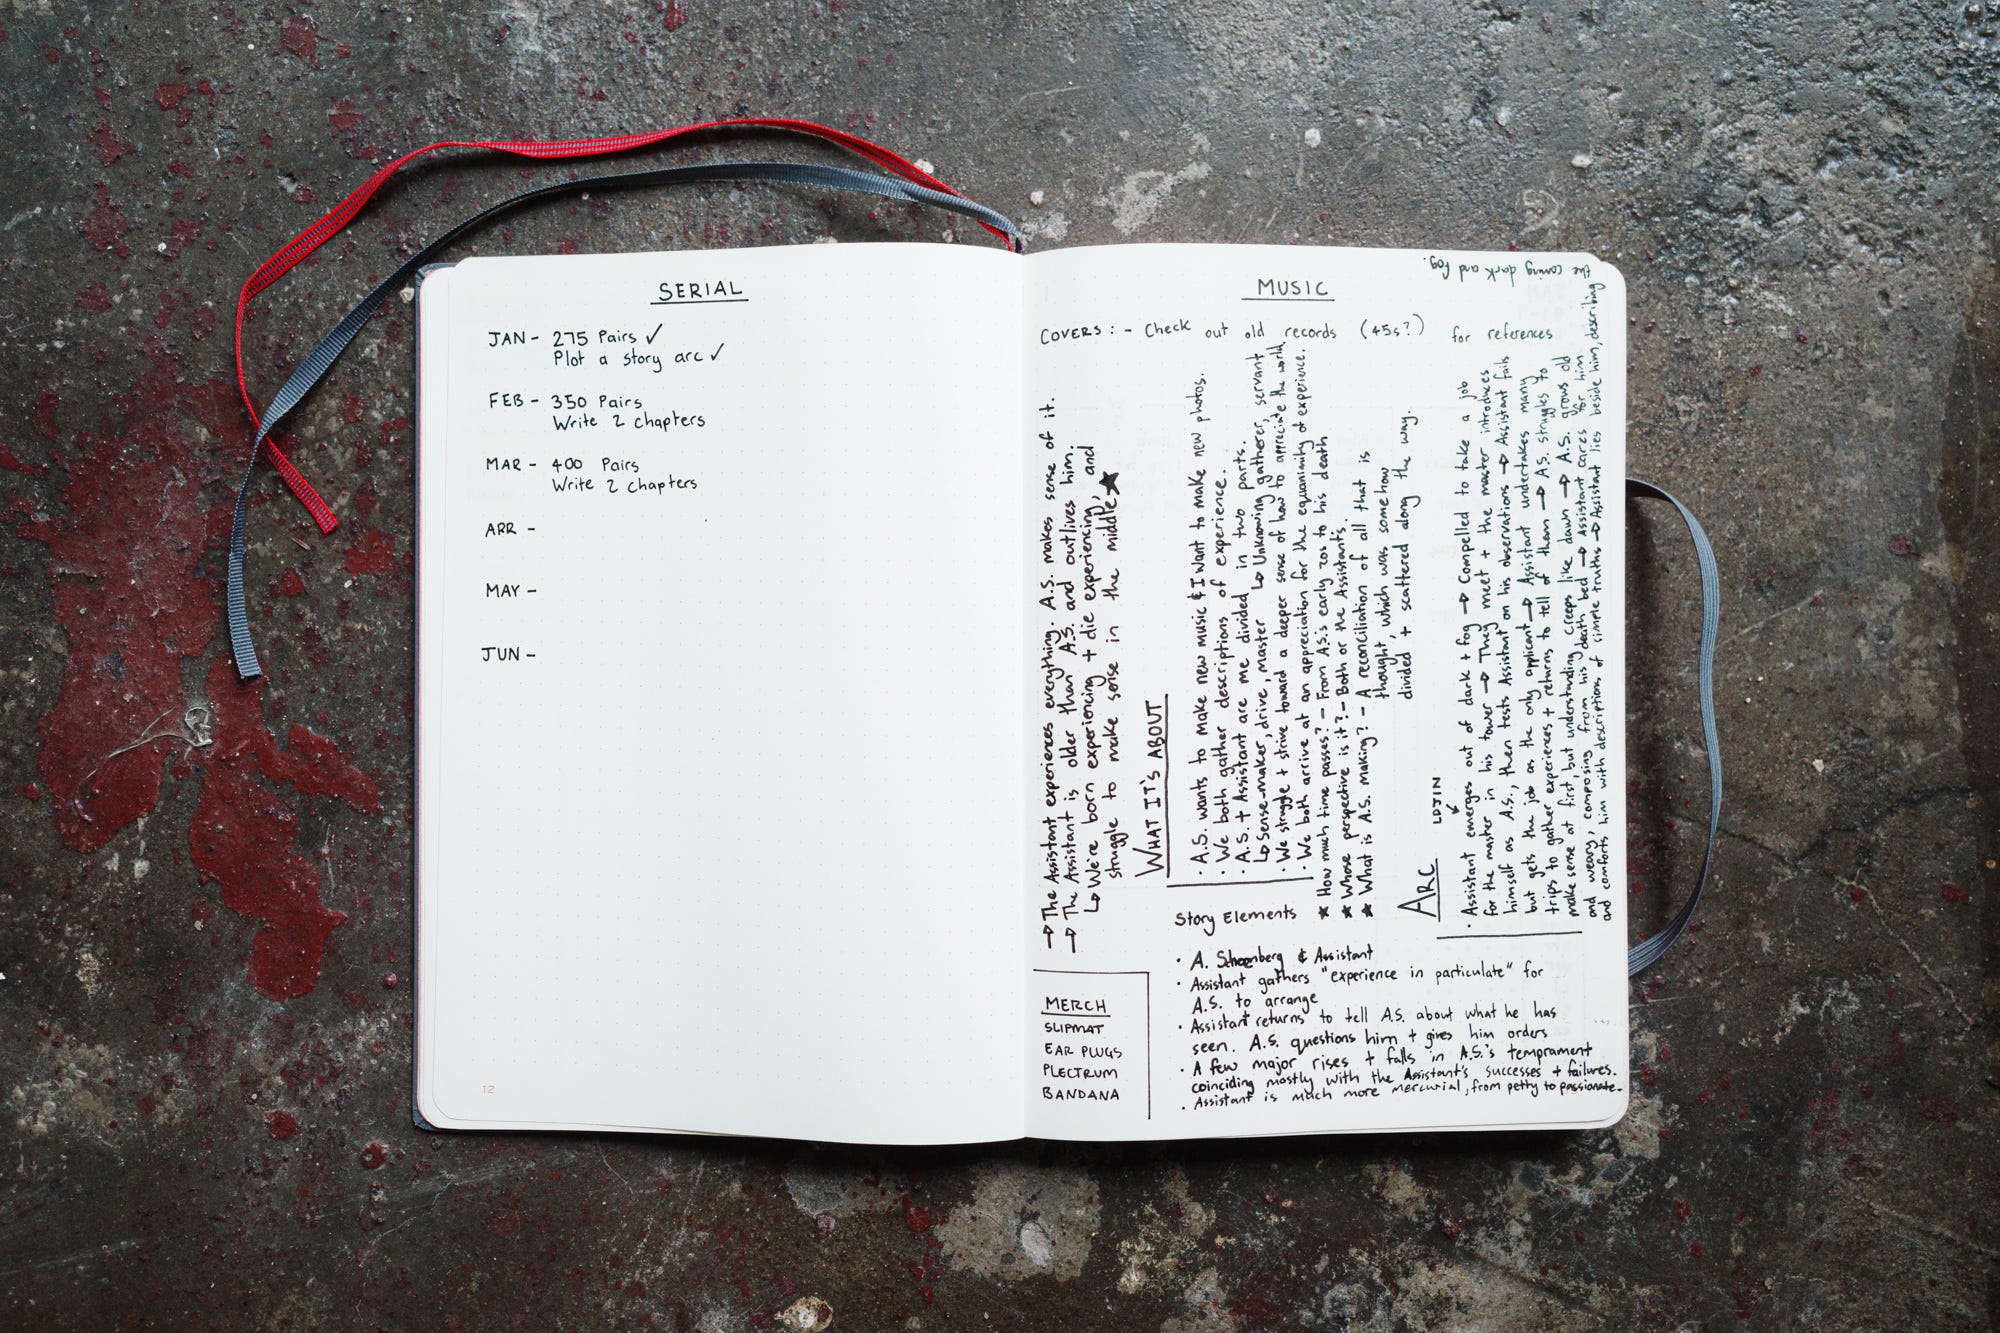 SERIAL
JAN - 275 Pairs ✓
Plot a story arc ✓
FEB - 350 Pairs
Write 2 chapters
MAR - 400 Pairs
Write 2 chapters
APR -
MAY -
JUN -
12
MUSIC
COVERS: - Check out old records (45s?) for references
→ The Assistant experiences everything. A.S. makes sense of it.
→ The Assistant is older than A.S. and outlives him.
↳ We're born experiencing + die experiencing, and
struggle to make sense in the middle ★
WHAT IT'S ABOUT
· A.S. wants to make new music & I want to make new photos.
· We both gather descriptions of experience.
· A.S. + Assistant are me divided in two parts.
↳ Sense-maker, drive, master ↳ Unknowing gatherer, servant
· We struggle + strive toward a deeper sense of how to appreciate the world.
· We both arrive at an appreciation for the equanimity of experience.
★ How much time passes? - From A.S.'s early 20s to his death
★ Whose perspective is it? - Both or the Assistant's.
★ What is A.S. making? - A reconciliation of all that is
thought, which was somehow
divided + scattered along the way.
ARC
LDJIN
· Assistant emerges out of dark + fog → Compelled to take a job
for the master in his tower → They meet + the master introduces
himself as A.S., then tests Assistant on his observations → Assistant fails
but gets the job as the only applicant → Assistant undertakes many
trips to gather experiences + returns to tell of them → A.S. struggles to
make sense at first, but understanding creeps like dawn → A.S. grows old
and weary, composing from his death bed → Assistant cares for him
and comforts him with descriptions of simple truths → Assistant lies beside him, describing
the coming dark and fog.
Story Elements
· A. Schoenberg & Assistant
· Assistant gathers "experience in particulate" for
A.S. to arrange
· Assistant returns to tell A.S. about what he has
seen. A.S. questions him + gives him orders
· A few major rises + falls in A.S.'s temprament
coinciding mostly with the Assistant's successes + failures.
· Assistant is much more mercurial, from petty to passionate.
MERCH
SLIPMAT
EAR PLUGS
PLECTRUM
BANDANA